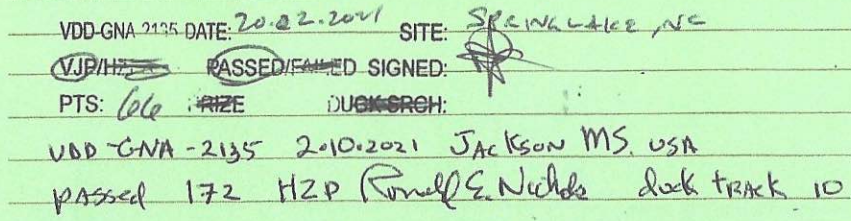 VDD-GNA 2135 DATE: 20.02.2021 SITE: SPRING LAKE, NC
VJP/HZP PASSED/FAILED SIGNED:
PTS: 66 PRIZE DUCK SRCH:
VDD-GNA-2135 2.10.2021 JACKSON MS. USA
PASSED 172 HZP Ronald E. Nichols duck tRACK 10